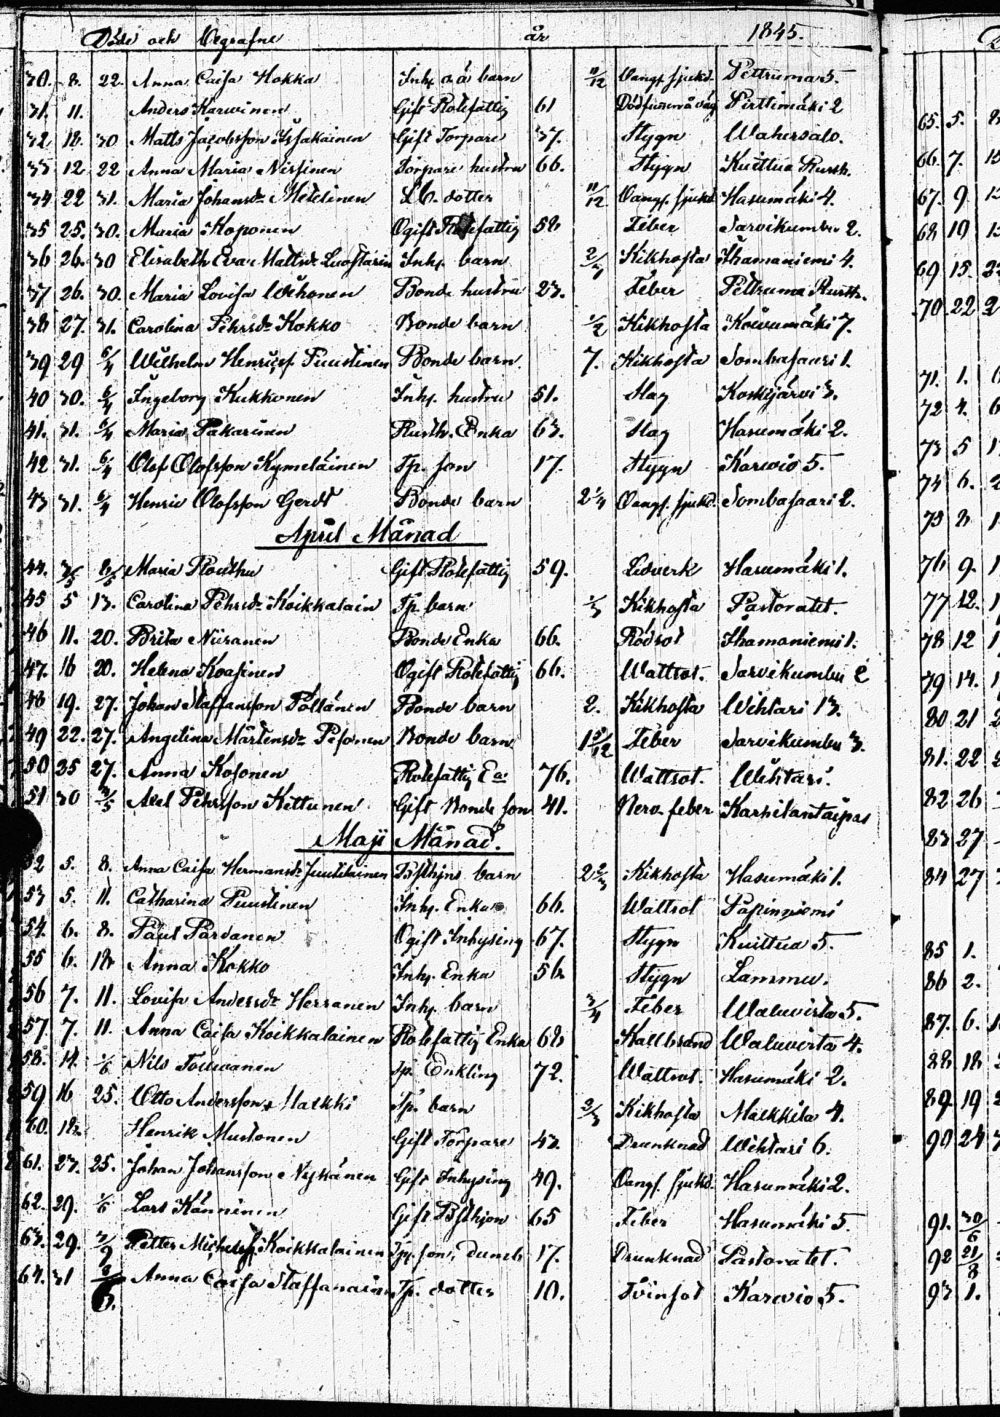 Döde och Begrafne år 1845.
30. 8. 22. Anna Caisa Hokka Inh. barn 11/12 Oangf. sjukd. Pettruma 5.
31. 11. Anders Karwinen Gift Rotefattig 61 Pirttimäki 2
32 18. 30 Matts Jacobsson Gift Torpare 37. Stygn Wahersalo.
33 12 22 Anna Maria Nissinen Torpare hustru 66. Stygn Kuittua Rusth.
34 22 31. Maria Johansdr dotter 11/12 Oangf. sjukd. Hasumäki 4.
35 25. 30. Maria Koponen Ogift Rotefattig 58 Feber Sarvikumbu 2.
36 26. 30 Elisabeth Eva Mattsdr Luostarin Inh. barn Kikhosta Shamaniemi 4.
37 26. 30. Maria Lovisa Wihonen Bonde hustru 23. Feber Pettruma Rusth.
38 27. 31. Carolina Pehrsdr Kokko Bonde barn 1/2 Kikhosta Koivumäki 7.
39 29 6/4 Wilhelm Henricss. Puustinen Bonde barn. 7. Kikhosta Sombasaari 1.
40 30. 6/4 Ingeborg Kukkonen Inh. hustru 51. Slag Koskijärvi 3.
41. 31. 6/4 Maria Pakarinen Rusth. Enka 63. Slag Hasumäki 2.
42 31. 6/4 Olof Olofsson Kymeläinen Tp. son 17. Stygn Karvio 5.
43 31. 6/4 Henric Olofsson Gerdt Bonde barn 2 1/4 Oangf. sjukd. Sombasaari 2.
April Månad
44. Maria Routhu Gift Rotefattig 59. Lidverk Hasumäki 1.
45 5 13. Carolina Pehrsdr Koikkalain Tp. barn Kikhosta Pastoratet.
46 11. 20. Brita Niiranen Bonde Enka 66. Rödsot Shamaniemi 1.
47. 16 20. Helena Koasinen Ogift Rotefattig 66. Wattsot. Sarvikumbu 2
48 19. 27. Johan Staffansson Pöllänen Bonde barn 2. Kikhosta Wihtari 13.
49 22. 27. Angelina Mårtensdr Pesonen Bonde barn 1 5/12 Feber Sarvikumbu 3.
50 25 27. Anna Kosonen Rotefattig Ea: 76. Wattsot. Wihtari.
51 30 Axel Pehrsson Kettunen Gift Bonde son 41. Nerv. feber Karhilantaipas
Maji Månad.
52 5. 8. Anna Caisa Hermansdr Juutilainen barn 2 2/3 Kikhosta Hasumäki 1.
53 5. 11. Catharina Puustinen Inh. Enka 66. Wattsot Papinniemi
54. 6. 8. Paul Parvanen Ogift Inhysing 67. Stygn Kuittua 5.
55 6. 18 Anna Kokko Inh. Enka 56 Stygn Lammu.
56 7. 11. Lovisa Andersdr Horranen Inh. barn 3/4 Feber Waluvirta 5.
57. 7. 11. Anna Caisa Koikkalainen Rotefattig Enka 68 Kallbrand Waluvirta 4.
58. 14. 1/6 Nils Toiwanen Tp. Enkling 72. Wattsot. Hasumäki 2.
59 16 25. Otto Andersson Halkki Tp. barn 2/3 Kikhosta Malkkila 4.
60. 18. Henrik Mustonen Gift Torpare 43. Drunknad Wihtari 6.
61. 23. 25. Johan Johansson Nyskänen Gift Inhysing 49. Oangf. sjukd. Hasumäki 2.
62. 29. 1/6 Lars Känninen Gift 65 Feber Hasumäki 5.
63. 29. Petter Michelss. Koikkalainen Tp. son, 17. Drunknad Pastoratet.
64. 31 Anna Caisa Staffanain Tp. dotter 10. Tvinsot Karvio 5.
65. 5.
66. 7.
67. 9
68 10
69 15.
70 22 2
71. 1.
72 4. 6
73 5
74 6.
75 8
76 9.
77 12.
78 12
79 14.
80. 21
81. 22
82 26
83 27
84 27
85 1.
86 2.
87. 6.
88 18
89. 19
90 24
91. 30/6
92 21/8
93 1.